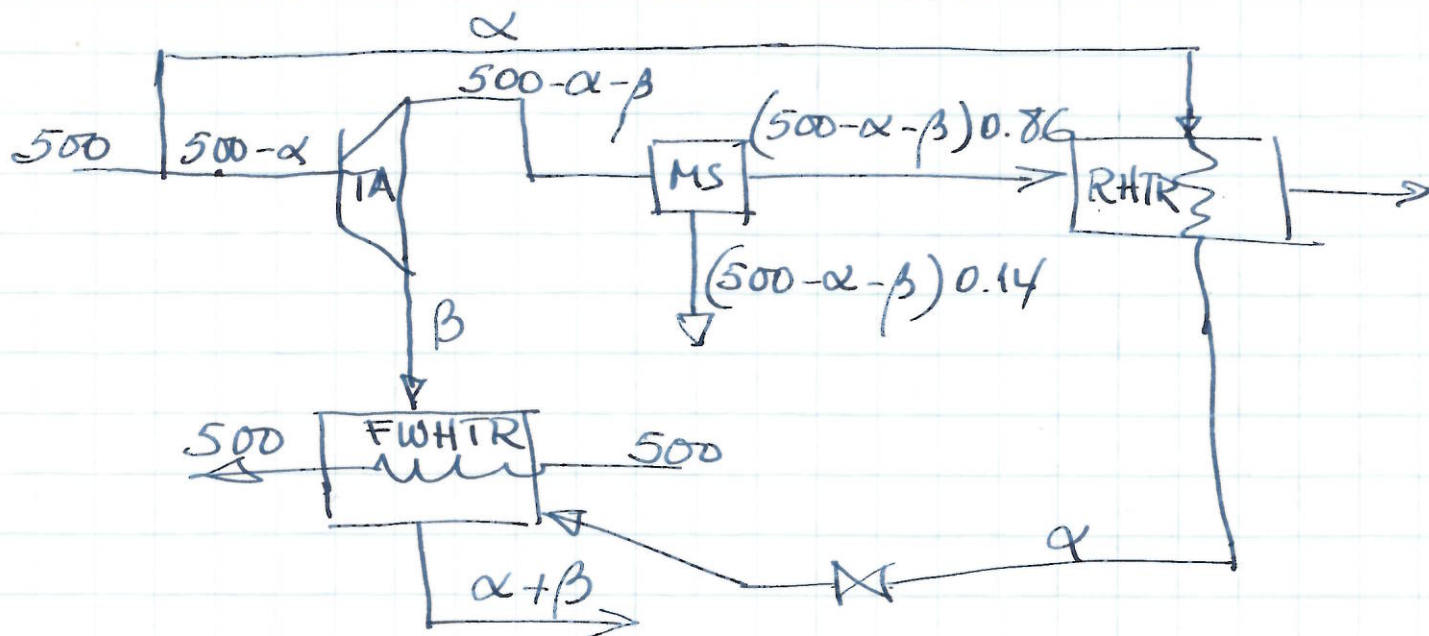 α
500-α-β
500
500-α
TA
MS
(500-α-β)0.86
RHTR
(500-α-β)0.14
β
500
FWHTR
500
α
α+β